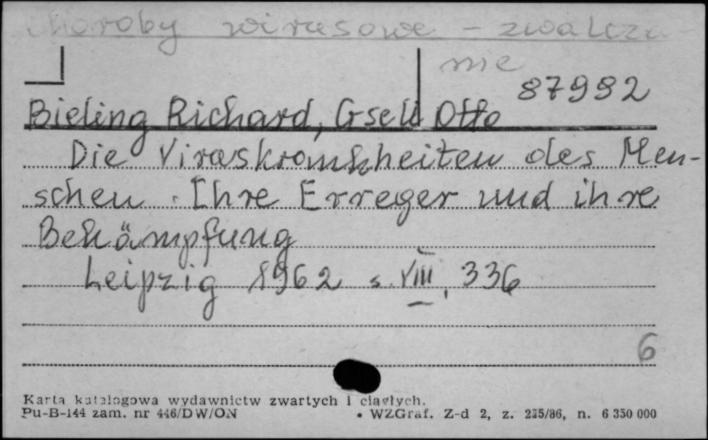 Choroby wirusowe - zwalcza-
nie
87982
Bieling Richard, Gsell Otto
Die Viruskrankheiten des Men-
schen. Ihre Erreger und ihre
Bekämpfung
Leipzig 1962 s. VIII, 336
6
Karta katalogowa wydawnictw zwartych i ciągłych.
Pu-B-144 zam. nr 446/DW/ON • WZGraf. Z-d 2, z. 225/86, n. 6 350 000